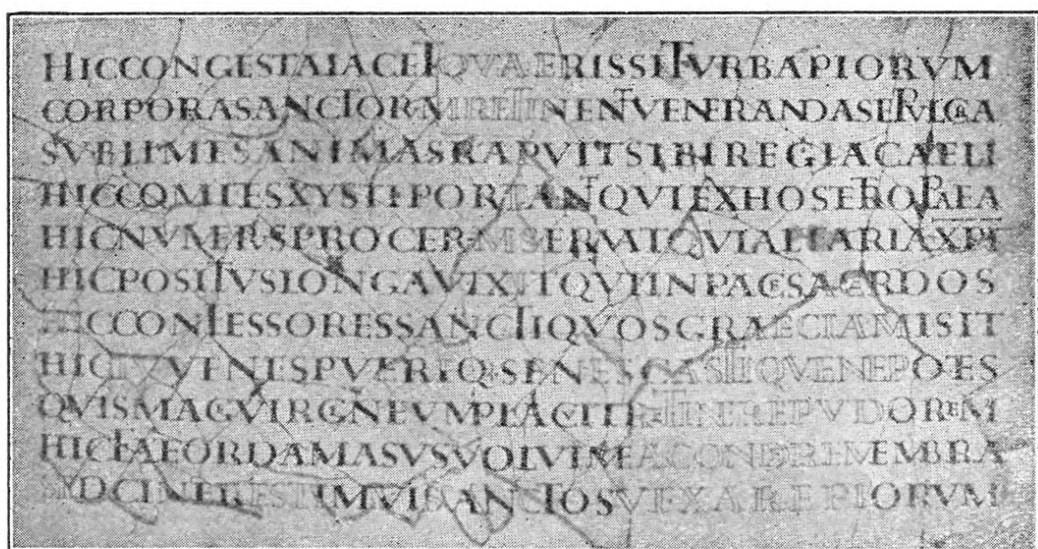 HIC CONGESTA IACET QVAERIS SI TVRBA PIORVM
CORPORA SANCTORVM RETINENT VENERANDA SEPVLCRA
SVBLIMES ANIMAS RAPVIT SIBI REGIA CAELI
HIC COMITES XYSTI PORTANT QVI EX HOSTE TROPAEA
HIC NVMERVS PROCERVM SERVAT QVI ALTARIA XPI
HIC POSITVS LONGA VIXIT QVI IN PACE SACERDOS
HIC CONFESSORES SANCTI QVOS GRAECIA MISIT
HIC IVVENES PVERIQ SENES CASTIQVE NEPOTES
QVIS MAGE VIRGINEVM PLACVIT RETINERE PVDOREM
HIC FATEOR DAMASVS VOLVI MEA CONDERE MEMBRA
SED CINERES TIMVI SANCTOS VEXARE PIORVM